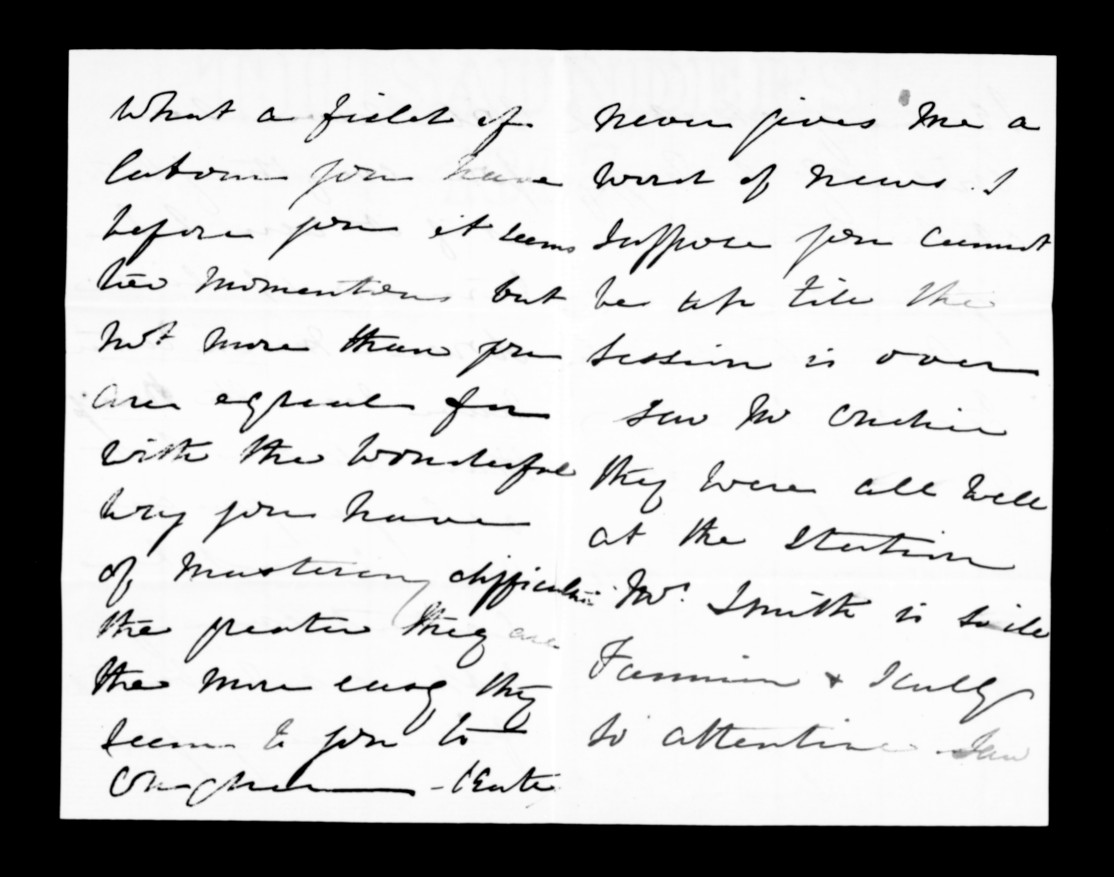 What a field of
labour you have
before you it seems
too momentous but
not more than you
are equal for
with the wonderful
way you have
of mastering difficulties
the greater they are
the more easy they
seem to you to
conquer - Kate
never gives me a
word of news. I
suppose you cannot
be up till the
session is over
saw Mr
they were all well
at the Station
Mr. Smith is so ill
Fannin & Scully
so attentive saw